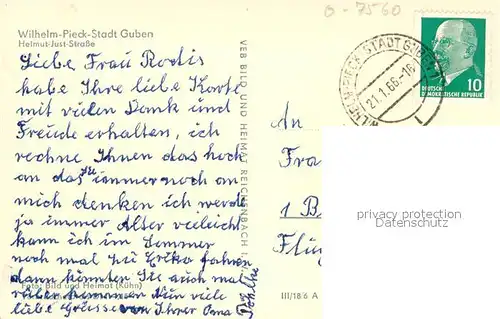 Wilhelm-Pieck-Stadt Guben
Helmut-Just-Straße
Liebe Frau Rodis
habe Ihre liebe Karte
mit vielen Dank und
Freude erhalten, ich
rechne Ihnen das hoch
an das Sie immer noch an
mich denken ich werde
ja immer Älter vieleicht
kann ich im Sommer
noch mal zu Erika fahren
dann könnten Sie auch mal
Foto: Bild und Heimat (Kühn)
Nun viele
liebe Grüsse von Ihrer Oma
VEB BILD UND HEIMAT REICHENBACH I. V.
0-7560
WILHELM-PIECK-STADT GUBEN 1
21.1.66.-16
10
DEUTSCHE
DEMOKRATISCHE REPUBLIK
An
Fra
1 B
privacy protection
watermark
III/18/6 A